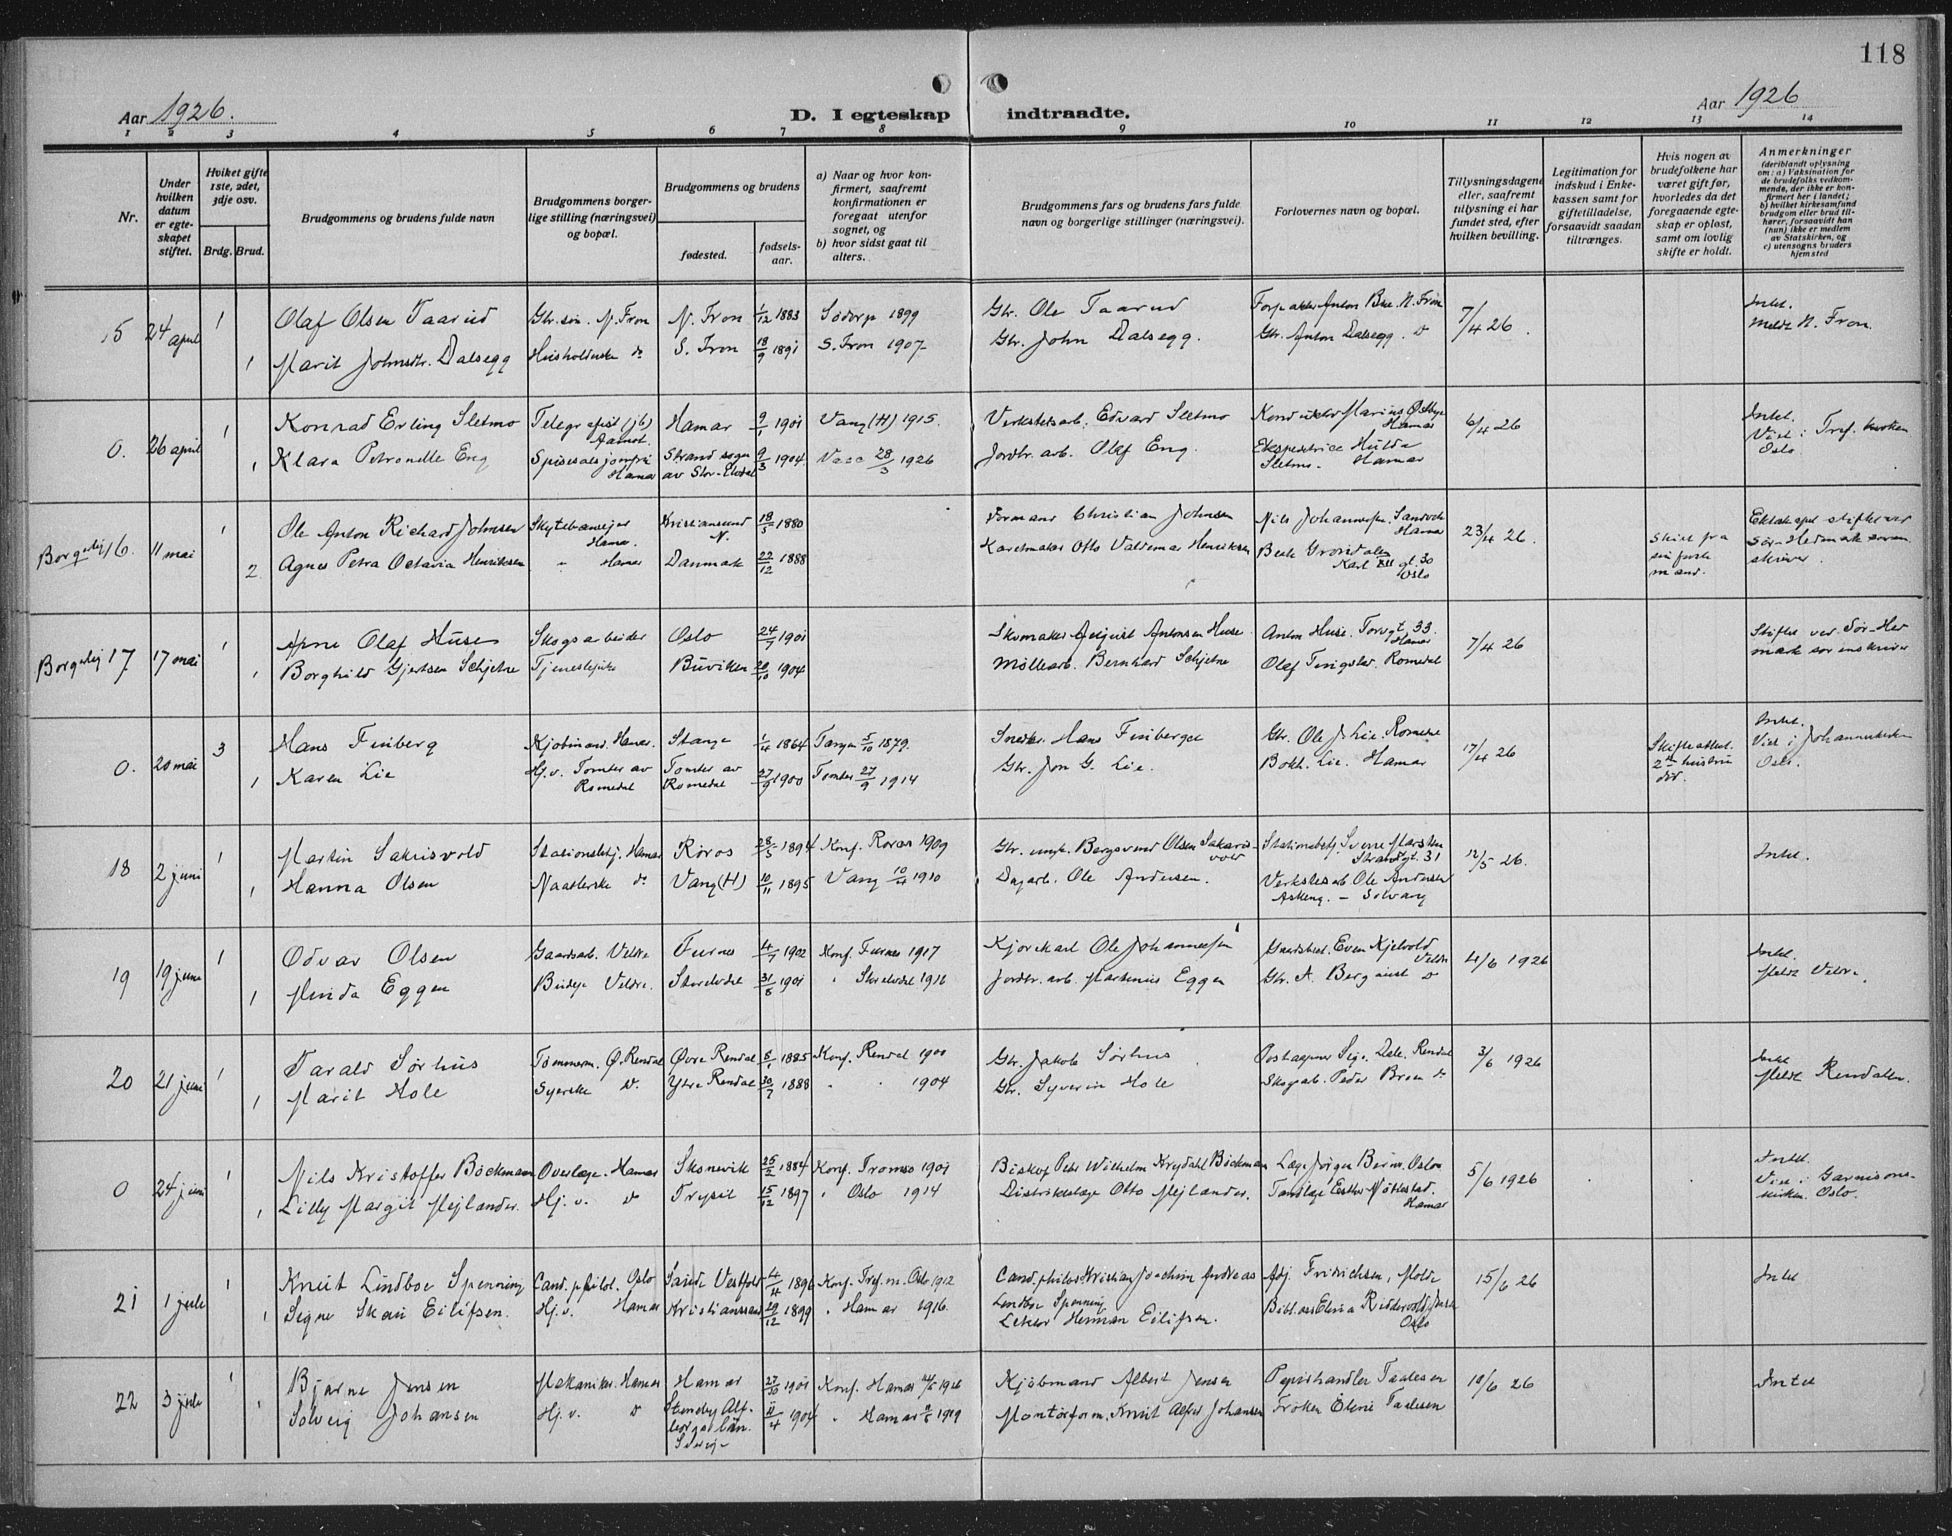 118
Aar 1926.
D. I egteskap indtraadte.
Aar 1926
1 2 3 4 5 6 7 8 9 10 11 12 13 14
Nr.
Under hvilken datum er egteskapet stiftet.
Hvilket gifte 1ste, 2det, 3dje osv.
Brdg. Brud.
Brudgommens og brudens fulde navn
Brudgommens borgerlige stilling (næringsvei) og bopæl.
Brudgommens og brudens
fødested.
fødselsaar.
a) Naar og hvor konfirmert, saafremt konfirmationen er foregaat utenfor sognet, og
b) hvor sidst gaat til alters.
Brudgommens fars og brudens fars fulde navn og borgerlige stillinger (næringsvei).
Forlovernes navn og bopæl.
Tillysningsdagene eller, saafremt tillysning ei har fundet sted, efter hvilken bevilling.
Legitimation for indskud i Enkekassen samt for giftetilladelse, forsaavidt saadan tiltrænges.
Hvis nogen av brudefolkene har været gift før, hvorledes da det foregaaende egteskap er opløst, samt om lovlig skifte er holdt.
Anmerkninger
(deriblandt oplysning om: a) Vaksination for de brudefolks vedkommende, der ikke er konfirmert her i landet, b) hvilket kirkesamfund brudgom eller brud tilhører, forsaavidt han (hun) ikke er medlem av Statskirken, og c) utensogns bruders hjemsted
15 24 april 1 Olaf Olsen Taarud Gbr.søn. N. Fron N. Fron 1/12 1883 Sødorp 1899 Gbr. Ole Taarud Forpakter Anton Bue. N. Fron 7/4 26. Intet.
1 Marit Johnsdtr. Dalsegg Husholderske do S. Fron 18/9 1891 S. Fron 1907 Gbr. John Dalsegg. Gbr. Anton Dalsegg. do Meldt N. Fron.
0. 26 april 1 Konrad Erling Sletmo Telegrafist Hamar 9/1 1901 Vang (H) 1915. Verkstetsarb. Edvard Sletmo Konduktør Marius Østbye Hamar 6/4 26 Intet.
1 Klara Petronelle Eng Spisesalsjomfru Hamar Strand sogn av Stor-Elvdal 9/3 1904 28/3 1926 Jordbr. arb. Olaf Eng. Ekspeditrice Hulda Sletmo. Hamar Viet i Tref. kirken Oslo
Borgerlig 16. 11 mai 1 Ole Anton Richard Johnsen Skytebaneejer Hamar Kristiansund N. 18/5 1880 Formand Christian Johnsen Nils Johannessen. Sandvik Hamar 23/4 26. Skilt fra sin første mand.
2 Agnes Petra Octavia Henriksen " Hamar Danmark 22/12 1888 Karetmaker Otto Valdemar Henriksen Karl XII gt. 30 Oslo Ektskapet stiftet ved Sør-Hedmark sorenskriver.
Borgerlig 17 17 mai 1 Arne Olaf Huse Skogsarbeider Oslo 24/7 1901 Skomaker August Antonsen Huse Anton Huse. Torvgt. 33. Hamar 7/4 26 Stiftet ved Sør-Hedmark sorenskriver
1 Borghild Gjertsen Schjetne Tjenestepike Buviken 20/10 1904 Møllearb. Bernhard Schjetne Olaf Tingstad. Romedal
0. 20 mai 3 Hans Finberg Kjøbmand. Hamar. Stange 1/4 1864 Tangen 5/10 1879. Snedker. Hans Finberget Gbr. Ole J. Lie. Romedal 17/4 26 Skifteattest. 2den hustru død. Intet.
1 Karen Lie Hj.v. Tomter av Romedal Tomter av Romedal 27/9 1900 Tomter 27/9 1914 Gbr. Jon G. Lie. Bokh. Lie. Hamar Viet i Johanneskirken Oslo.
18 2 juni 1 Martin Sakrisvold Stationsbetj. Hamar Røros 28/5 1894 Konf. Røros 1909 Gbr. Bergsvend Olsen Sakrisvold Stationsbetj. Sverre Marsten Strandgt. 31 12/5 26. Intet.
1 Hanna Olsen do Vang (H) 10/11 1895 Vang 10/4 1910 Dagarb. Ole Andersen. Verkstedsarb Ole Andersen Askeng. – Solvang
19 19 juni 1 Odvar Olsen Gaardsarb. Veldre Furnes 4/7 1902 Konf. Furnes 1917 Kjørekarl Ole Johannessen Gaardsbest. Even Kjelvold Veldre 4/6 1926 Intet.
1 Minda Eggen Budeje Veldre. 31/8 1901 " 1916 Jordbr. arb. Martinus Eggen Gbr. A. Bergseust do Meldt Veldre.
20 21 juni 1 Tarald Sørhus Tømmerm. Ø. Rendal Øvre Rendal 5/1 1885 Konf. Rendal 1900 Gbr. Jakob Sørhus Postaapner Sig. Dale. Rendal 3/6 1926 Intet
1 Marit Hole Syerske do. Ytre Rendal 30/7 1888 " " 1904 Gbr. Syverin Hole Skogsarb. Peder Bren do Meldt Rendalen.
0 24 juni 1 Nils Kristoffer Böckman Overlæge. Hamar Skonevik 25/2 1884 Konf. Tromsø 1901 Biskop Peter Wilhelm Kreydahl Böckman Læge Jørgen Berner. Oslo 5/6 1926 Intet.
1 Lilly Margit Mejlænder. Hj. v. do Trysil 15/12 1897 " Oslo 1914 Distriktslæge Otto Mejlænder. Tandlæge Esther Nøklestad. Hamar Viet i Garnisonskirken. Oslo.
21 1 juli 1 Knut Lindboe Spenning Cand. philol. Oslo Sande Vestfold 4/4 1896 Konf. Tref. m. Oslo 1912 Cand. philos Kristian Joachim Andreas Lindboe Spenning Adj. Fridrichsen, Molde 15/6 26 Intet
1 Signe Skau Eilifsen. Hj.v. Hamar Kristianssand 29/12 1899 " Hamar 1916. Lektor Herman Eilifsen. Oslo
22 3 juli 1 Bjarne Jensen Mekaniker. Hamar Hamar 27/10 1901 Konf. Hamar 1916 Kjøbmand Albert Jensen Papirhandler Taalesen 10/6 26 Intet
1 Solveig Johansen Hj. v. do 11/4 1904 " Hamar 1919 Montørform. Knut Alfred Johansen Frøken Eline Taalesen